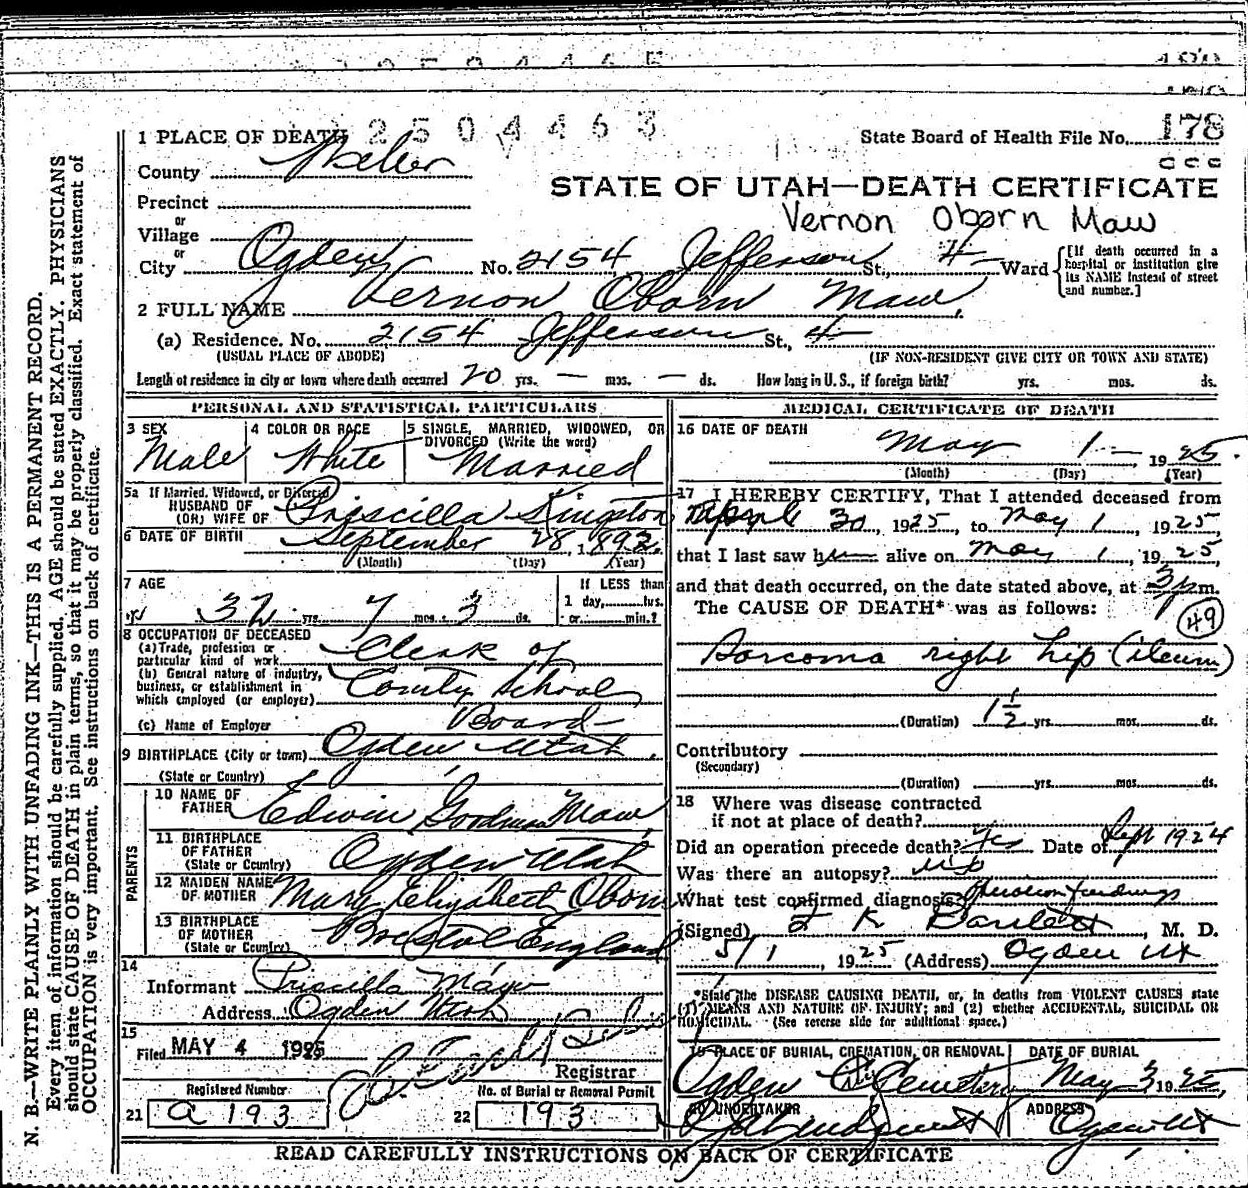 2504463
1 PLACE OF DEATH
State Board of Health File No. 178
County Weber
STATE OF UTAH—DEATH CERTIFICATE
Precinct
Vernon Oborn Maw
or
Village
or
City Ogden No. 2154 Jefferson St., 4 Ward
[If death occurred in a hospital or institution give its NAME instead of street and number.]
2 FULL NAME Vernon Oborn Maw
(a) Residence. No. 2154 Jefferson St., 4
(USUAL PLACE OF ABODE) (IF NON-RESIDENT GIVE CITY OR TOWN AND STATE)
Length of residence in city or town where death occurred 20 yrs. — mos. — ds. How long in U. S., if foreign birth? yrs. mos. ds.
PERSONAL AND STATISTICAL PARTICULARS
3 SEX Male
4 COLOR OR RACE White
5 SINGLE, MARRIED, WIDOWED, OR DIVORCED (Write the word) Married
5a If Married, Widowed, or Divorced
HUSBAND OF
(OR) WIFE OF Priscilla Kingston
6 DATE OF BIRTH September 28, 1892
(Month) (Day) (Year)
7 AGE 32 yrs. 7 mos. 3 ds.
If LESS than
1 day, hrs.
or min.?
8 OCCUPATION OF DECEASED
(a) Trade, profession or
particular kind of work Clerk of
(b) General nature of industry,
business, or establishment in
which employed (or employer) County School
Board
(c) Name of Employer
9 BIRTHPLACE (City or town) Ogden Utah
(State or Country)
PARENTS
10 NAME OF
FATHER Edwin Goodman Maw
11 BIRTHPLACE
OF FATHER
(State or Country) Ogden Utah
12 MAIDEN NAME
OF MOTHER Mary Elizabeth Oborn
13 BIRTHPLACE
OF MOTHER
(State or Country) Bristol England
14
Informant Priscilla Maw
Address Ogden Utah
15
Filed MAY 4 1925
Registrar
Registered Number
21 a 193
No. of Burial or Removal Permit
22 193
MEDICAL CERTIFICATE OF DEATH
16 DATE OF DEATH
May 1— 1925.
(Month) (Day) (Year)
17 I HEREBY CERTIFY, That I attended deceased from
April 30, 1925, to May 1, 1925,
that I last saw him alive on May 1, 1925
and that death occurred, on the date stated above, at 3 p.m.
The CAUSE OF DEATH* was as follows:
49
Sarcoma right hip (ileum)
(Duration) 1 1/2 yrs. mos. ds.
Contributory
(Secondary)
(Duration) yrs. mos. ds.
18 Where was disease contracted
if not at place of death?
Did an operation precede death? Yes Date of Sept 1924
Was there an autopsy? no
What test confirmed diagnosis? Operation findings
(Signed) Bartlett, M. D.
5/1, 1925 (Address) Ogden Ut
*State the DISEASE CAUSING DEATH, or, in deaths from VIOLENT CAUSES state
(1) MEANS AND NATURE OF INJURY; and (2) whether ACCIDENTAL, SUICIDAL OR
HOMICIDAL. (See reverse side for additional space.)
19 PLACE OF BURIAL, CREMATION, OR REMOVAL
Ogden City Cemetery
DATE OF BURIAL
May 3 1925,
20 UNDERTAKER
ADDRESS
Ogden Ut
READ CAREFULLY INSTRUCTIONS ON BACK OF CERTIFICATE
N. B.—WRITE PLAINLY WITH UNFADING INK—THIS IS A PERMANENT RECORD.
Every item of information should be carefully supplied. AGE should be stated EXACTLY. PHYSICIANS
should state CAUSE OF DEATH in plain terms, so that it may be properly classified. Exact statement of
OCCUPATION is very important. See instructions on back of certificate.